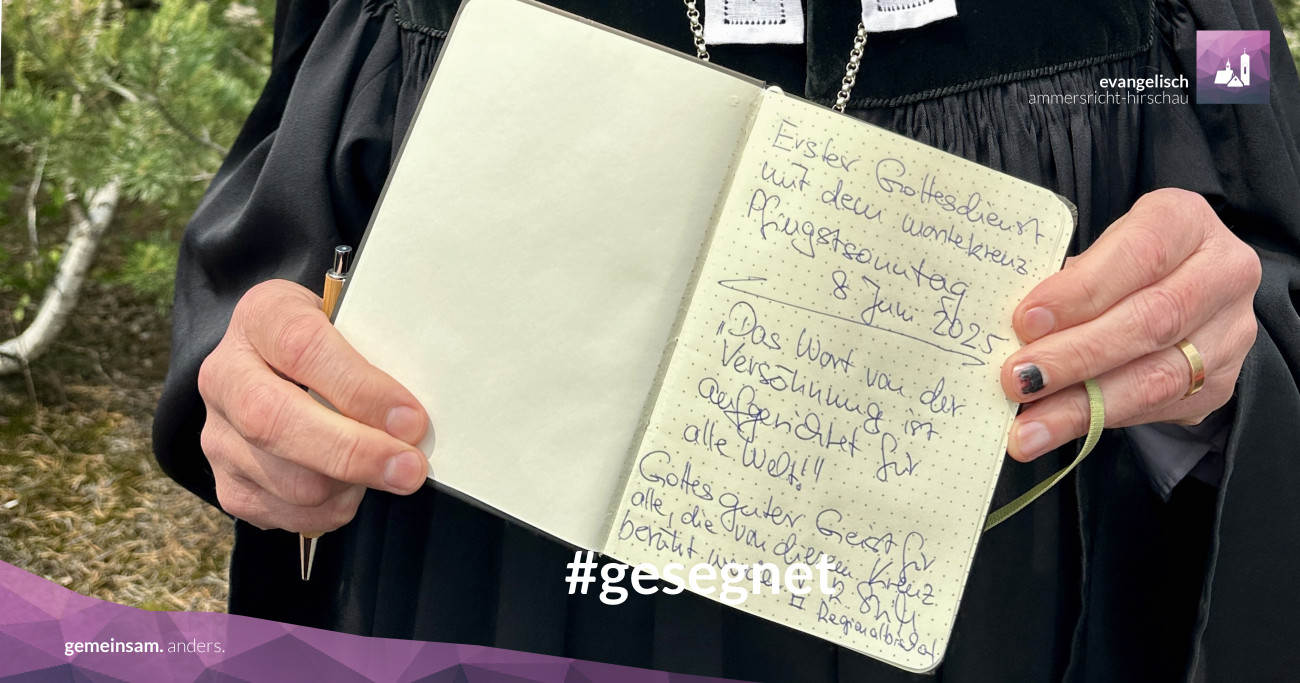 evangelisch
ammersricht-hirschau
Erster Gottesdienst
mit dem
Pfingstsonntag
8 Juni 2025
„Das Wort von der
Versöhnung ist
aufgerichtet für
alle Welt!"
Gottes guter Geist für
alle, die von diesem Kreuz
berührt
#gesegnet
gemeinsam. anders.